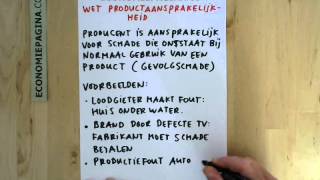 ECONOMIEPAGINA.COM
WET PRODUCTAANSPRAKELIJK-
HEID
PRODUCENT IS AANSPRAKELIJK
VOOR SCHADE DIE ONTSTAAT BIJ
NORMAAL GEBRUIK VAN EEN
PRODUCT (GEVOLGSCHADE)
VOORBEELDEN:
- LOODGIETER MAAKT FOUT:
HUIS ONDER WATER.
- BRAND DOOR DEFECTE TV:
FABRIKANT MOET SCHADE
BETALEN
- PRODUCTIEFOUT AUTO